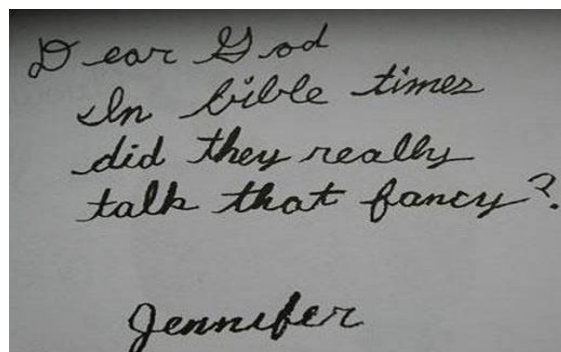 Dear God
In bible times
did they really
talk that fancy?
Jennifer